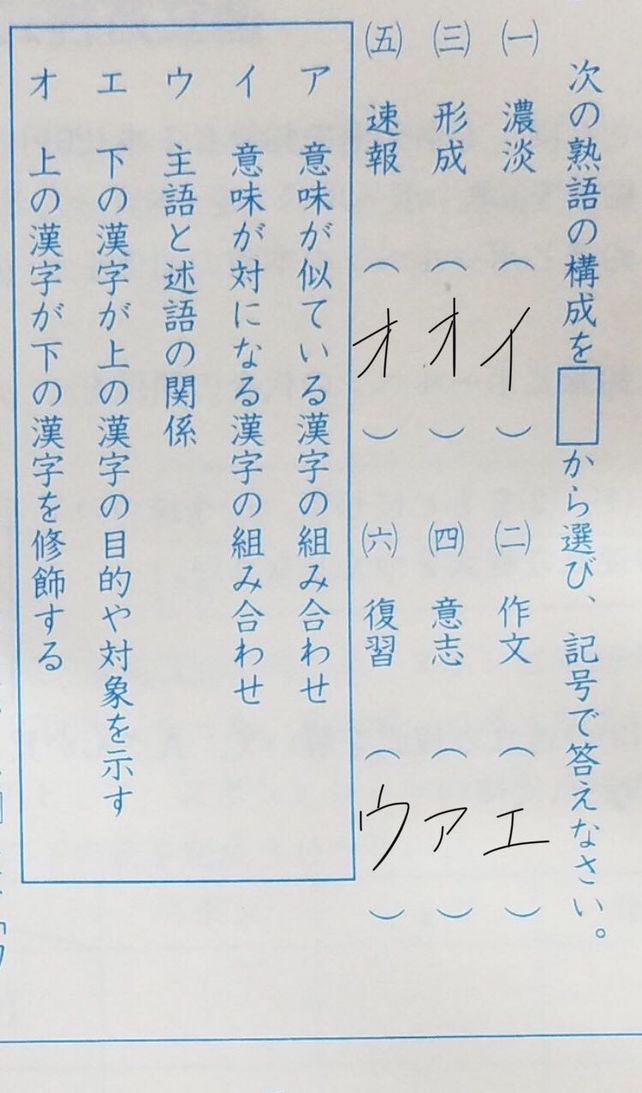 次の熟語の構成を□から選び、記号で答えなさい。
(一) 濃淡 (イ)
(二) 作文 (エ)
(三) 形成 (オ)
(四) 意志 (ア)
(五) 速報 (オ)
(六) 復習 (ウ)
ア 意味が似ている漢字の組み合わせ
イ 意味が対になる漢字の組み合わせ
ウ 主語と述語の関係
エ 下の漢字が上の漢字の目的や対象を示す
オ 上の漢字が下の漢字を修飾する